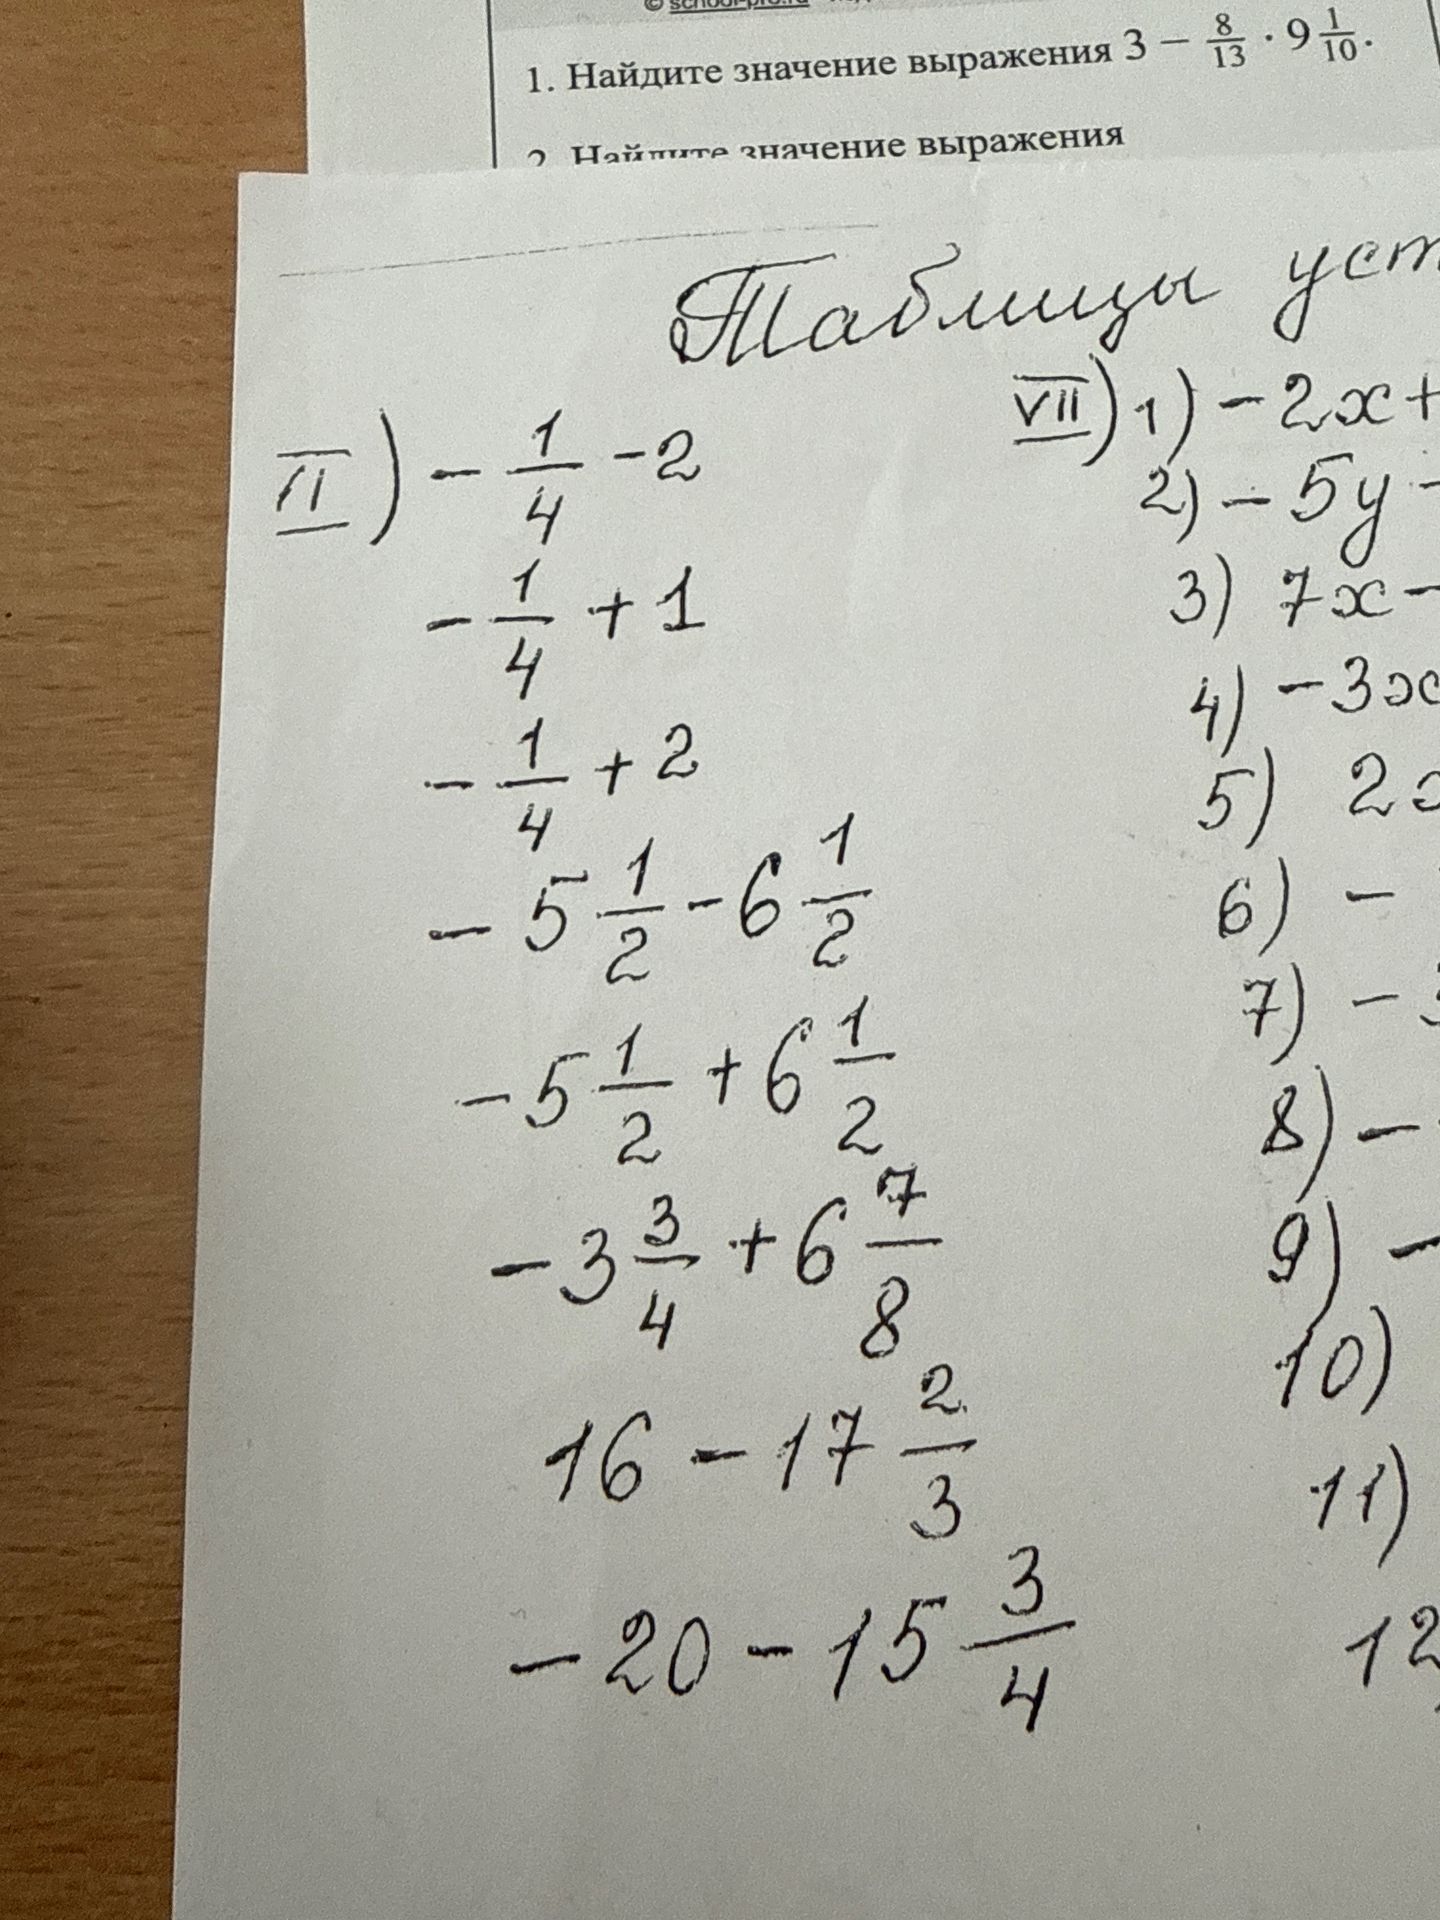 © school-pro.ru
1. Найдите значение выражения 3 − 8/13 · 9 1/10.
2. Найдите значение выражения
Таблицы уст
II) - 1/4 - 2
- 1/4 + 1
- 1/4 + 2
- 5 1/2 - 6 1/2
- 5 1/2 + 6 1/2
- 3 3/4 + 6 7/8
16 - 17 2/3
- 20 - 15 3/4
VII) 1) - 2x +
2) - 5y -
3) 7x -
4) - 3x
5) 2x
6) -
7) - 3
8) -
9) -
10)
11)
12